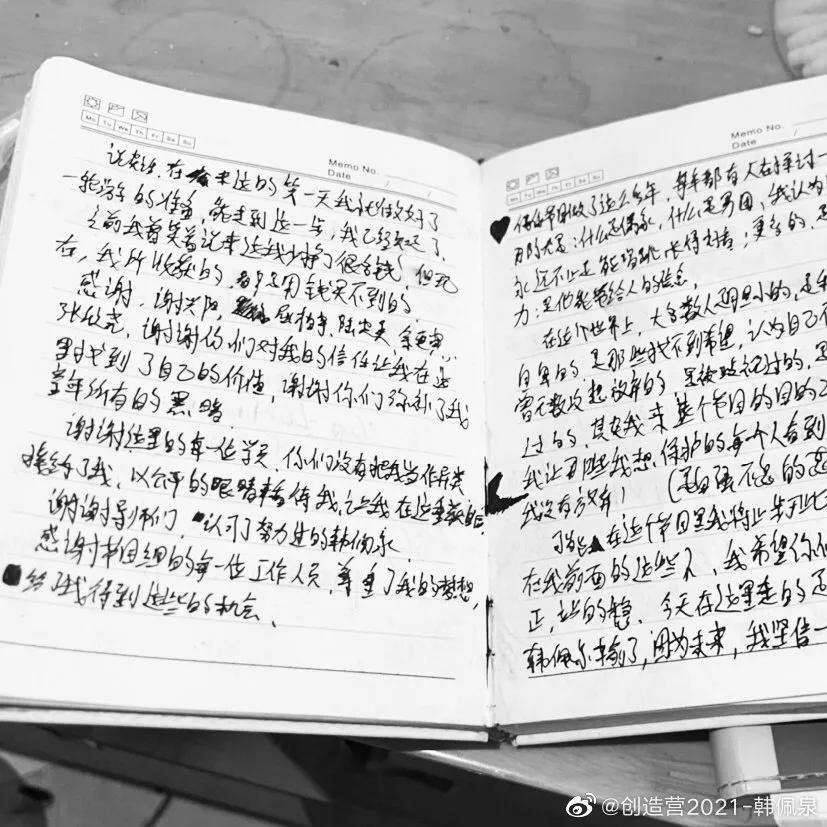 Mo Tu We Th Fr Sa Su
Memo No.
Date /
说实话,在来这的第一天我就做好了
一轮游的准备,能走到这一步,我已经知足了,
之前我曾笑着说来这我少挣了很多钱,但现
在,我所收获的,都是用钱买不到的。
感谢,谢兴阳,屈柏宇,陆定昊,余更寅,
张欣尧,谢谢你们对我的信任让我在这
里找到了自己的价值,谢谢你们弥补了我
童年所有的黑暗
谢谢这里的每一位学员,你们没有把我当作异类
接纳了我,以公平的眼睛看待我,让我在这里
谢谢导师们,认可了努力过的韩佩泉
感谢节目组的每一位工作人员,尊重了我的梦想,
给了我得到这些的机会。
Mo Tu We Th Fr Sa Su
Memo No.
Date /
偶像节目做了这么多年,每年都有人在探讨一
什么是偶像,什么是男团,我认为
永远不止是能唱跳 长得好看;更多的,是
力:是他能带给人的信念,
在这个世界上,大多数人 的,是
自卑的 是那些找不到希望,认为自己
曾无数次想放弃的 是被 过的,是
过的,其实我来 这个节目的目的
我让那些我想保护的每个人看到
我没有放弃)
可能 在这个节目里我将止步于七
在我前面的这些人,我希望你们
正, 的 今天在这里走的是
韩佩泉输了,因为未来,我坚信一
@创造营2021-韩佩泉